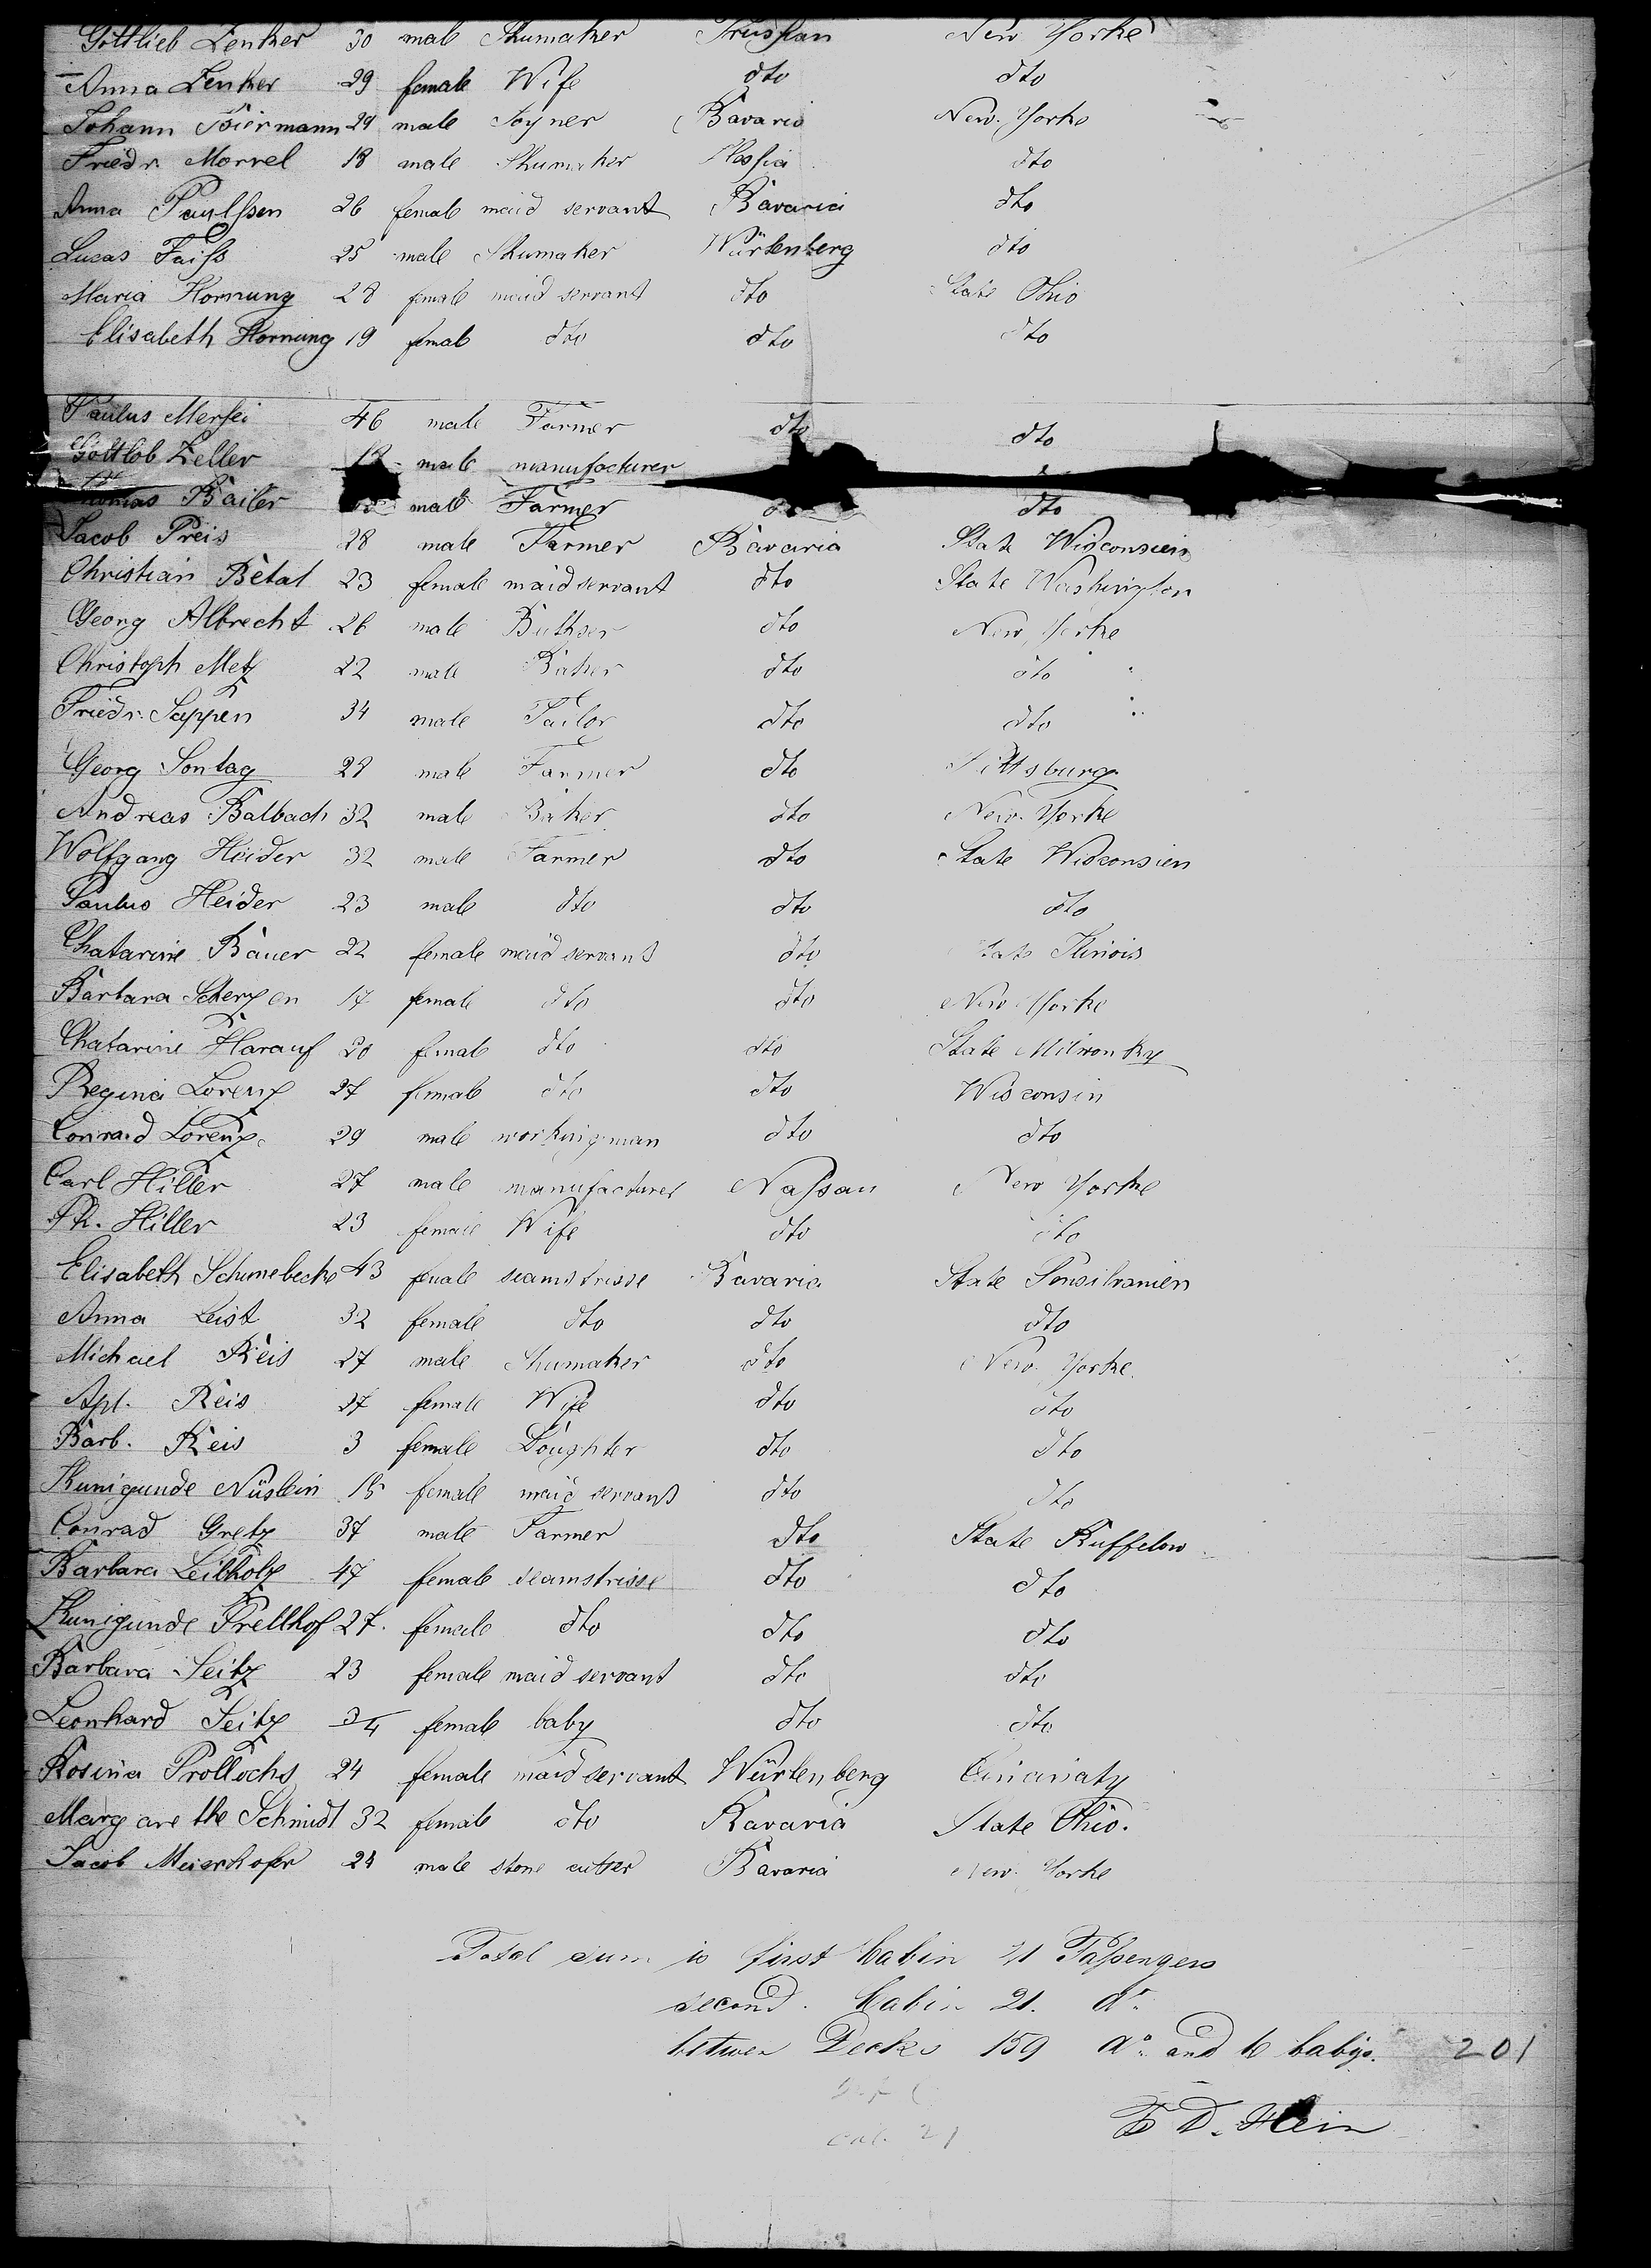 Gottlieb Zenker 30 male Shumaker Prussian New Yorke
Anna Zenker 29 female Wife dto dto
Johann Biermann 29 male Joyner Bavaria New-Yorke
Friedr. Morrel 18 male Shumaker Hessia dto
Anna Paulssen 26 female maid servant Bavaria dto
Lucas Faiss 25 male Shumaker Würtenberg dto
Maria Hornung 28 female maid servant dto State Ohio
Elisabeth Hornung 19 femal dto dto dto
Paulus Mersei 46 male Farmer dto dto
Gottlob Zeller 18 male manufacturer
Thomas Bailer male Farmer dto
Jacob Preis 28 male Farmer Bavaria State Wisconsien
Christian Betat 23 female maid servant dto State Washington
Georg Albrecht 26 male Buthser dto New Yorke
Christoph Metz 22 male Baker dto dto
Friedr. Sappen 34 male Tailor dto dto
Georg Sontag 28 male Farmer dto Pittsburg
Andreas Balbach 32 male Baker dto New-Yorke
Wolfgang Heider 32 male Farmer dto State Wisconsien
Paulus Heider 23 male dto dto dto
Chatarine Bauer 22 female maid servant dto State Ilinois
Barbara Scherzen 17 female dto dto New Yorke
Chatarine Harauf 20 female dto dto State Milwonky
Regina Lorenz 27 female dto dto Wisconsin
Conrad Lorenz 29 male workingman dto dto
Carl Hiller 27 male manufacturer Nassau New Yorke
Ph. Hiller 23 female Wife dto dto
Elisabeth Schunebecke 43 female seamstrisse Bavaria State Pensilvanien
Anna Leist 32 female dto dto dto
Michael Reis 27 male Shumaker dto New-Yorke
Apl. Reis 27 female Wife dto dto
Barb. Reis 3 female Doughter dto dto
Kunigunde Nüslein 15 female maid servant dto dto
Conrad Gretz 37 male Farmer dto State Buffelow
Barbara Leibholz 47 female seamstrisse dto dto
Kunigunde Prellhof 27. female dto dto dto
Barbara Seitz 23 female maid servant dto dto
Leonhard Seitz 3/4 female baby dto dto
Rosina Prollochs 24 female maid servant Würtenberg Cincinaty
Margarethe Schmidt 32 female dto Bavaria State Ohio.
Jacob Meierhofer 24 male stone cutter Bavaria New-Yorke
Total sum is first Cabin 21 Passengers
second. Cabin 21. do
betwen Decks 159 do and 6 babys. 201
D. Hein